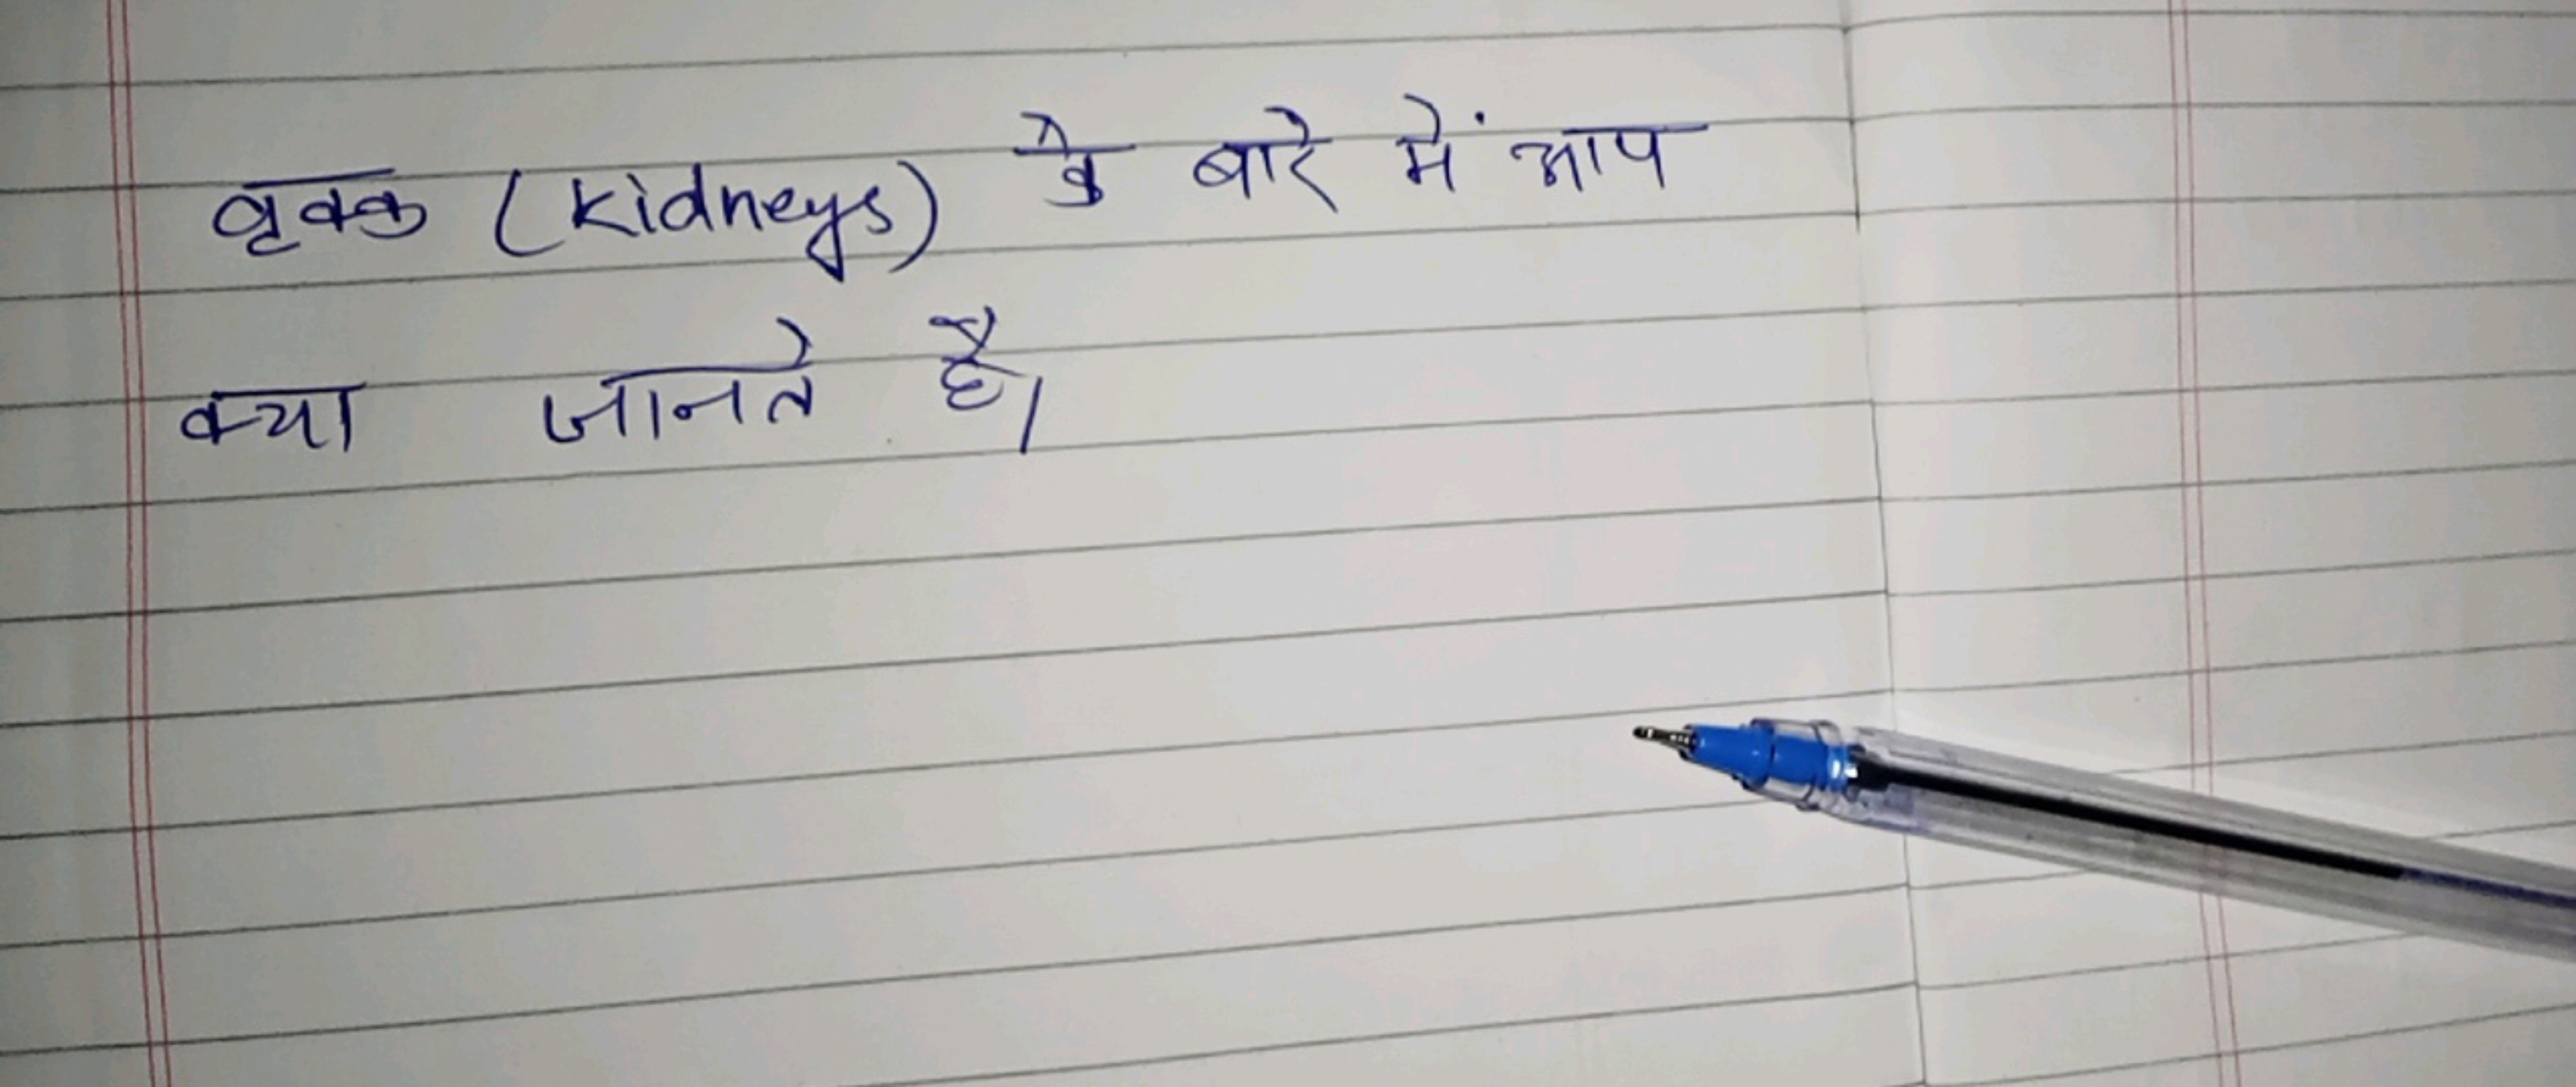 वृक्क (kidneys) के बारे में आप
क्या जानते है।